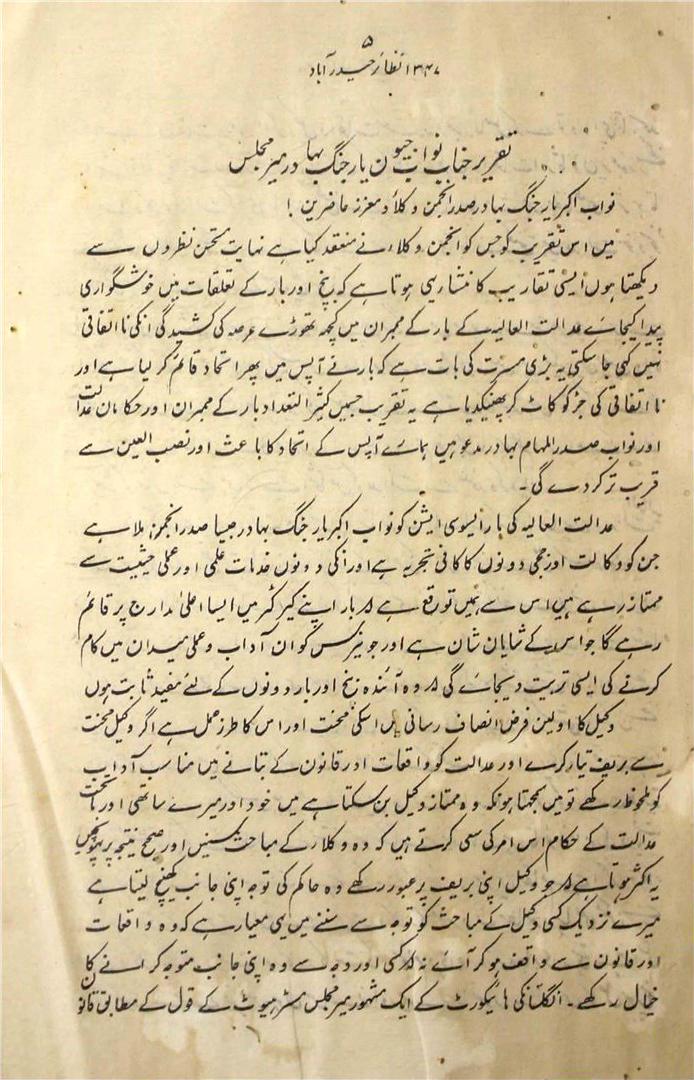 ۵
۱۳۴۷ نظائر حیدرآباد
تقریر جناب نواب جیون یار جنگ بہادر میر مجلس
نواب اکبر یار جنگ بہادر صدر انجمن وکلاء و معزز حاضرین !
میں اس تقریب کو جس کو انجمن وکلاء نے منعقد کیا ہے نہایت مستحسن نظروں سے
دیکھتا ہوں ایسی تقاریب کا منشا یہی ہوتا ہے کہ بنچ اور بار کے تعلقات میں خوشگواری
پیدا کیجائے عدالت العالیہ کے بار کے ممبران میں کچھ تھوڑے عرصہ کی کشیدگی انکی نا اتفاقی
نہیں کہی جا سکتی یہ بڑی مسرت کی بات ہے کہ بار نے آپس میں پھر اتحاد قائم کر لیا ہے اور
نا اتفاقی کی جڑ کو کاٹ کر پھینکدیا ہے یہ تقریب جسمیں کثیر التعداد بار کے ممبران اور حکامان عدالت
اور نواب صدر المہام بہادر مدعو ہیں ہمارے آپس کے اتحاد کا باعث اور نصب العین سے
قریب تر کردے گی ۔
عدالت العالیہ کی بار ایسوی ایشن کو نواب اکبر یار جنگ بہادر جیسا صدر انجمن ملا ہے
جن کو وکالت اور ججی دونوں کا کافی تجربہ ہے اور انکی دونوں خدمات علمی اور عملی حیثیت سے
ممتاز رہے ہیں اس سے ہمیں توقع ہے کہ بار اپنے کیرکٹر میں ایسا اعلیٰ مدارج پر قائم
رہے گا جو اس کے شایان شان ہے اور جونیرس کو ان آداب و عملی میدان میں کام
کرنے کی ایسی تربیت دیجائے گی کہ وہ آئندہ بنچ اور بار دونوں کے لئے مفید ثابت ہوں
وکیل کا اولین فرض انصاف رسانی میں اسکی محنت اور اس کا طرز عمل ہے اگر وکیل محنت
سے بریف تیار کرے اور عدالت کو واقعات اور قانون کے بتانے میں مناسب آداب
کو ملحوظ رکھے تو میں سمجھتا ہوں کہ وہ ممتاز وکیل بن سکتا ہے میں خود اور میرے ساتھی اور ماتحت
عدالت کے حکام اس امر کی سعی کرتے ہیں کہ وہ وکلاء کے مباحث سنیں اور صحیح نتیجہ پر پہونچیں
یہ اکثر ہوتا ہے کہ جو وکیل اپنی بریف پر عبور رکھے وہ حاکم کی توجہ اپنی جانب کھینچ لیتا ہے
میرے نزدیک کسی وکیل کے مباحث کو توجہ سے سننے میں یہی معیار ہے کہ وہ واقعات
اور قانون سے واقف ہو کر آئے نہ کہ کسی اور وجہ سے وہ اپنی جانب متوجہ کرانے کا
خیال رکھے ۔ انگلستانکی ہائیکورٹ کے ایک مشہور میر مجلس مسٹر ہیوٹ کے قول کے مطابق